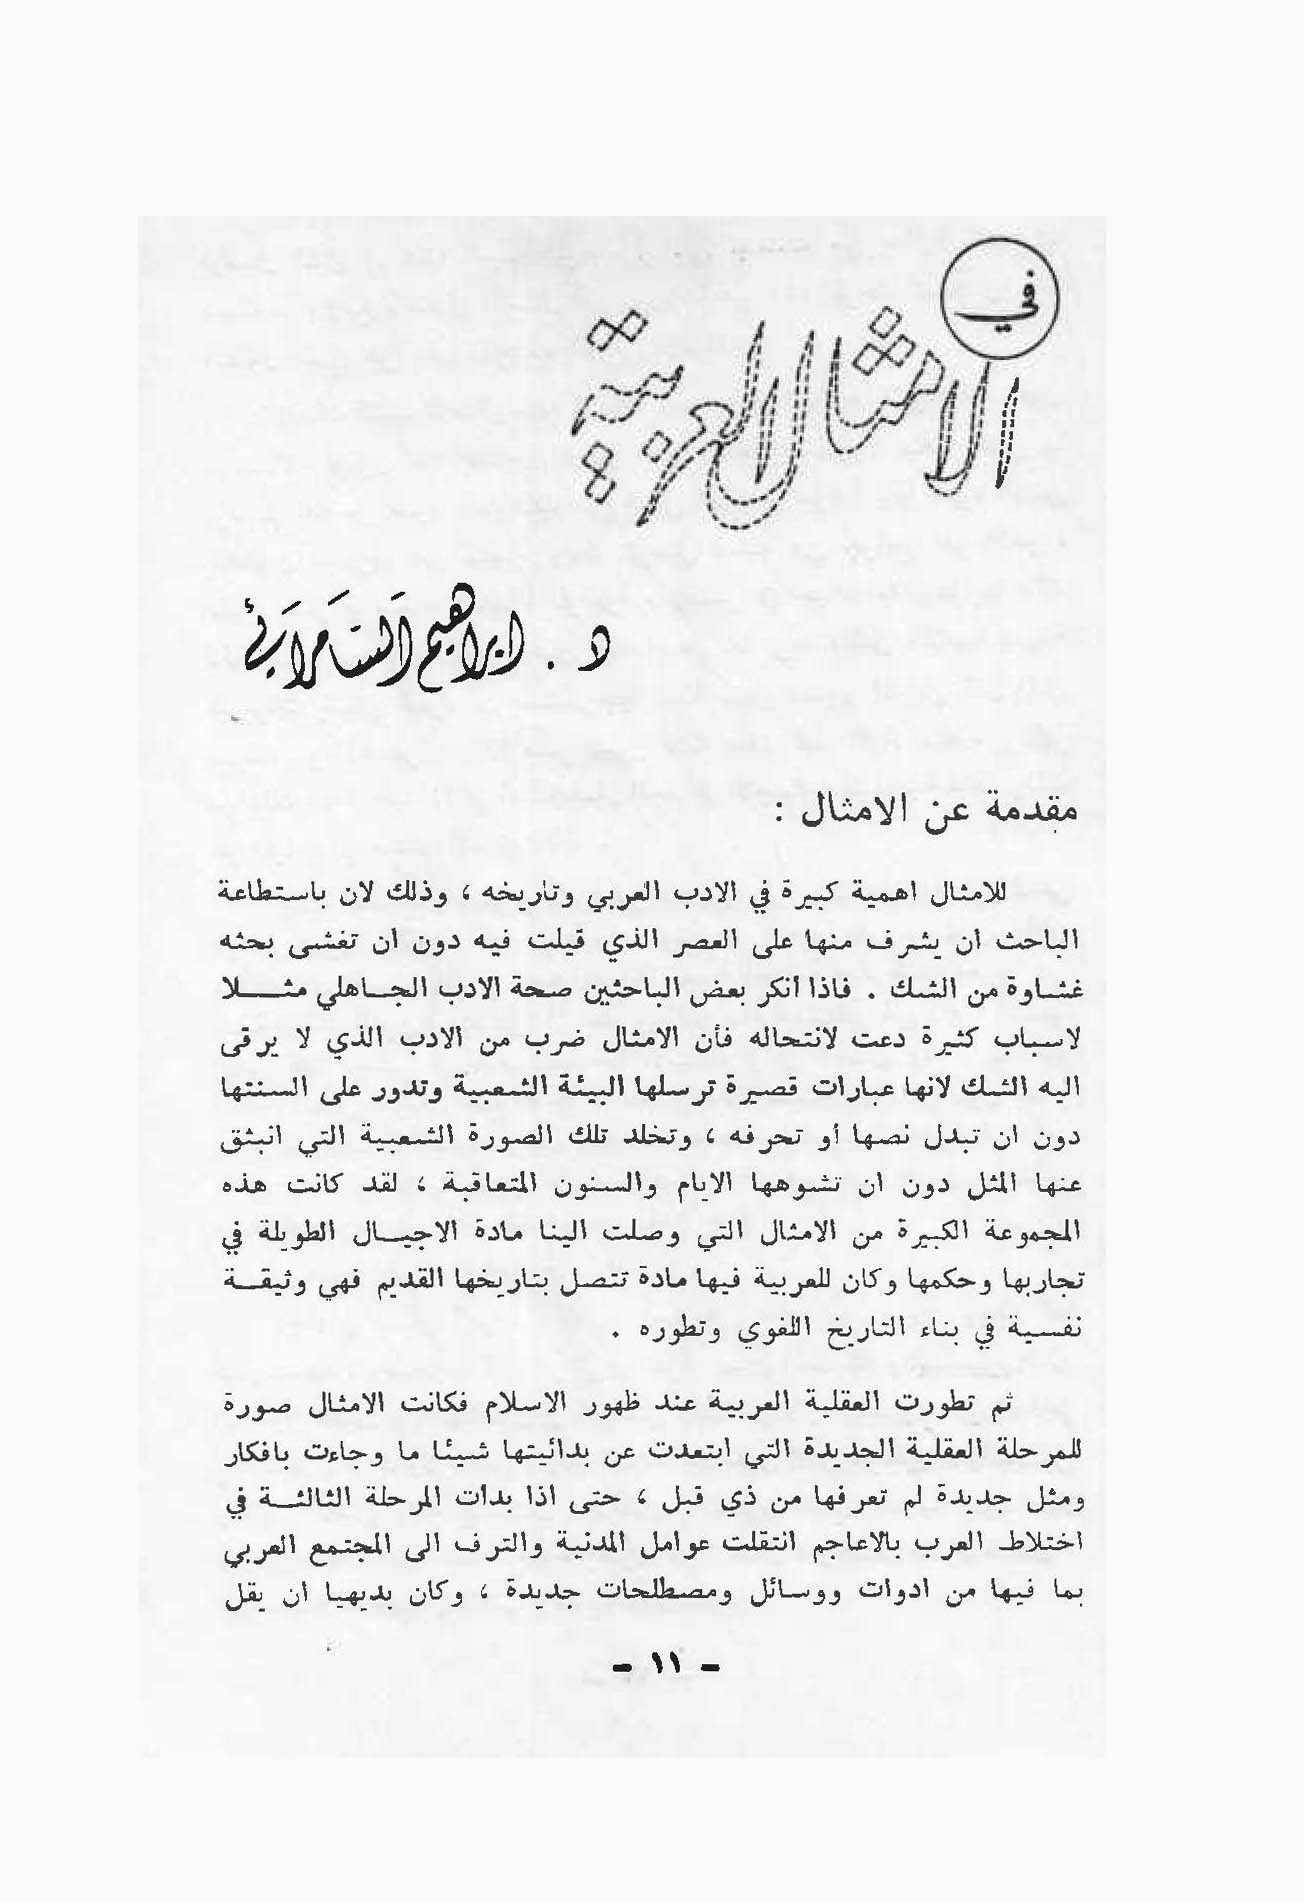 في
الامثال العربية
د. ابراهيم السامرائي
مقدمة عن الامثال :
للامثال اهمية كبيرة في الادب العربي وتاريخه ، وذلك لان باستطاعة
الباحث ان يشرف منها على العصر الذي قيلت فيه دون ان تغشى بحثه
غشاوة من الشك . فاذا أنكر بعض الباحثين صحة الادب الجاهلي مثلا
لاسباب كثيرة دعت لانتحاله فأن الامثال ضرب من الادب الذي لا يرقى
اليه الشك لانها عبارات قصيرة ترسلها البيئة الشعبية وتدور على السنتها
دون ان تبدل نصها أو تحرفه ، وتخلد تلك الصورة الشعبية التي انبثق
عنها المثل دون ان تشوهها الايام والسنون المتعاقبة ، لقد كانت هذه
المجموعة الكبيرة من الامثال التي وصلت الينا مادة الاجيال الطويلة في
تجاربها وحكمها وكان للعربية فيها مادة تتصل بتاريخها القديم فهي وثيقة
نفسية في بناء التاريخ اللغوي وتطوره .
ثم تطورت العقلية العربية عند ظهور الاسلام فكانت الامثال صورة
للمرحلة العقلية الجديدة التي ابتعدت عن بدائيتها شيئا ما وجاءت بافكار
ومثل جديدة لم تعرفها من ذي قبل ، حتى اذا بدأت المرحلة الثالثة في
اختلاط العرب بالاعاجم انتقلت عوامل المدنية والترف الى المجتمع العربي
بما فيها من ادوات ووسائل ومصطلحات جديدة ، وكان بديهيا ان يقل
- ١١ -